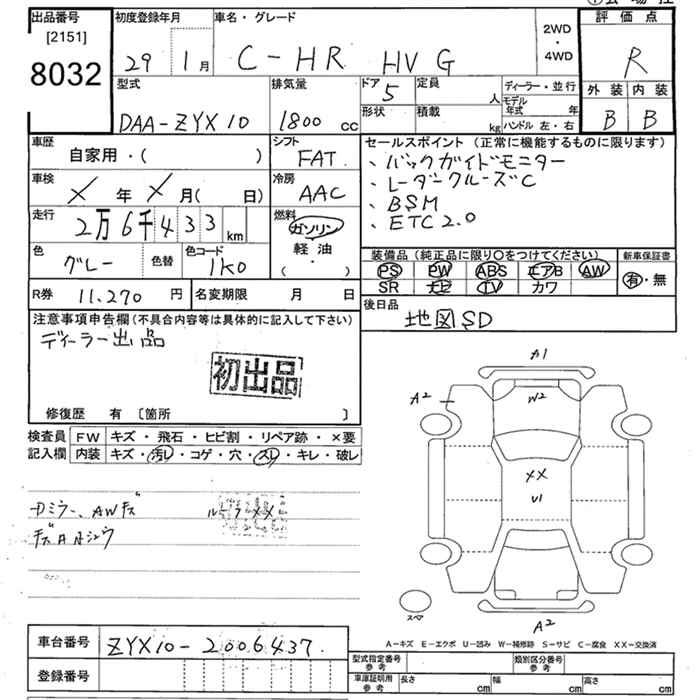 出品番号
[2151]
8032
初度登録年月
29 1月
車名・グレード
C-HR HV G
2WD
・
4WD
評価点
R
外装 内装
B B
型式
DAA-ZYX10
排気量
1800 cc
ドア
5
定員
人
形状
積載
kg
ディーラー・並行
モデル年式 年
ハンドル 左・右
車歴
自家用・( )
シフト
FAT
セールスポイント (正常に機能するものに限ります)
、バックガイドモニター
、レーダークルーズC
、BSM
、ETC2.0
車検
X年X月( 日)
冷房
AAC
走行
2万6千433km
燃料
ガソリン
軽油
( ・ )
色
グレー
色替
色コード
1K0
装備品 (純正品に限り○をつけてください)
PS PW ABS エアB AW
SR ナビ TV カワ
新車保証書
有・無
R券 11,270円
名変期限 月 日
後日品
地図SD
注意事項申告欄(不具合内容等は具体的に記入して下さい)
ディーラー出品
初出品
修復歴 有 〔箇所 〕
検査員
記入欄
FW キズ・飛石・ヒビ割・リペア跡・×要
内装 キズ・汚レ・コゲ・穴・スレ・キレ・破レ
ミラー、AWキズ ルーフXX
A1
A2
W2
XX
U1
スペア
A2
A-キズ E-エクボ U-凹み W-補修跡 S-サビ C-腐食 XX-交換済
車台番号 ZYX10-2006437.
登録番号
型式指定番号
参考
類別区分番号
参考
車庫証明用
参考
長さ cm
幅 cm
高さ cm